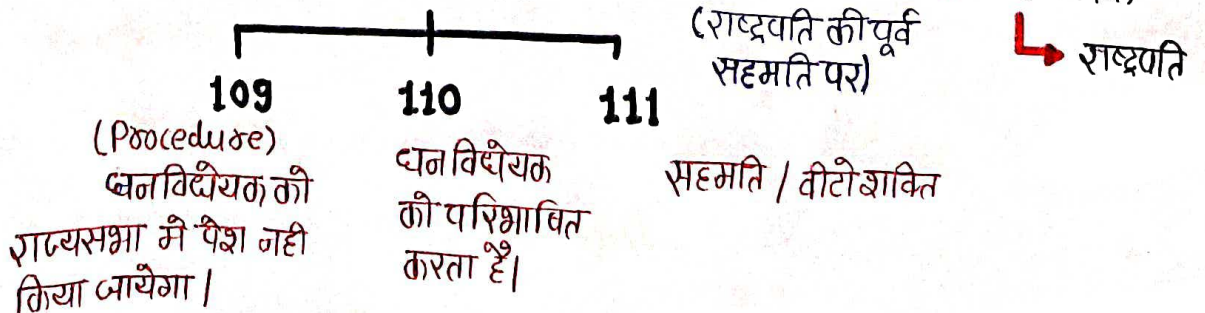 (राष्ट्रपति की पूर्व
सहमति पर)
राष्ट्रपति
109
110
111
(Procedure)
धनविधेयक को
राज्यसभा मे पेश नही
किया जायेगा।
धन विधेयक
को परिभाषित
करता है।
सहमति / वीटो शक्ति